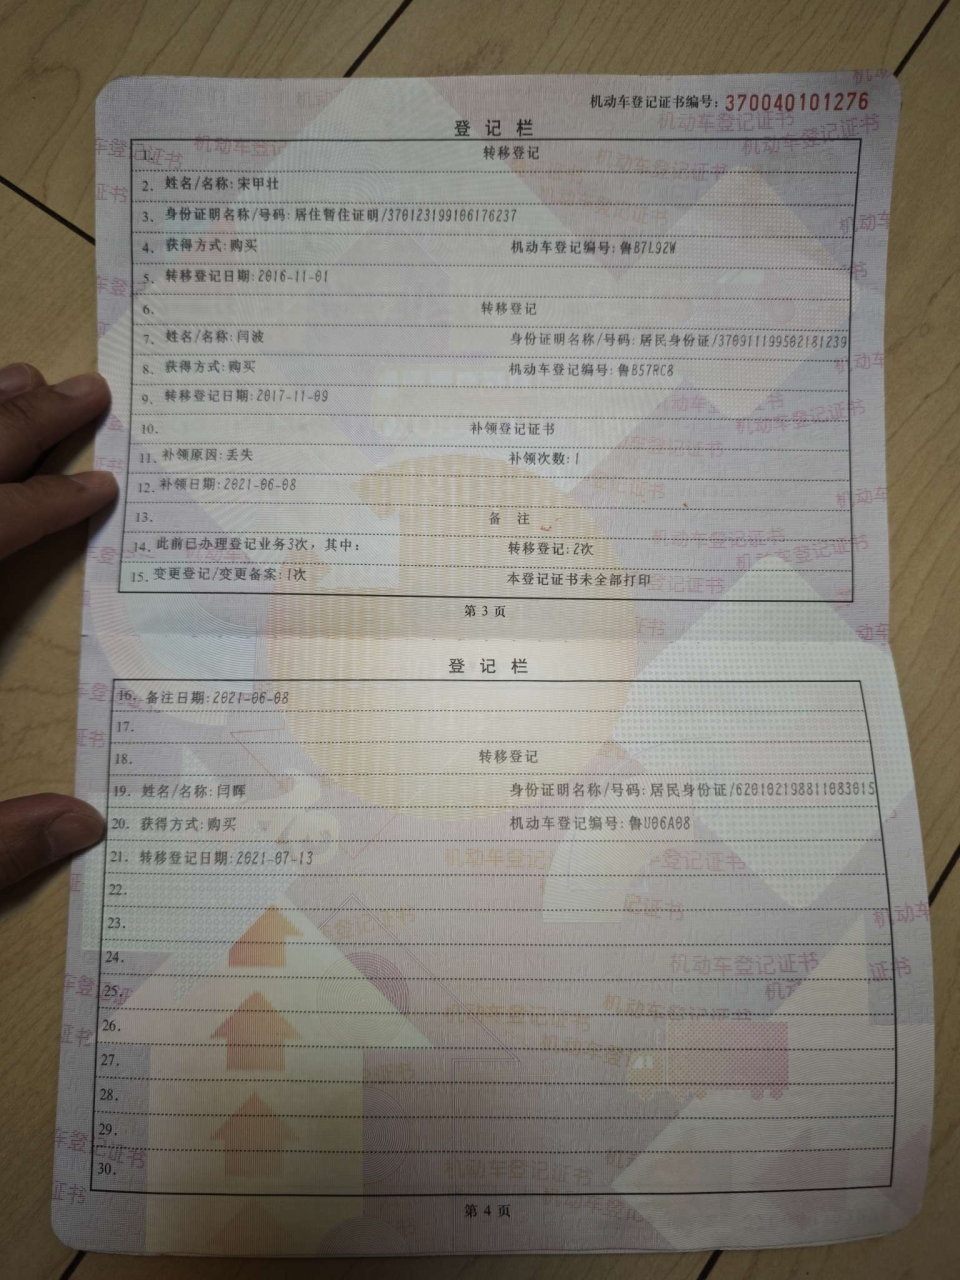 机动车登记证书编号：370040101276
登记栏
1. 转移登记
2. 姓名/名称:宋甲壮
3. 身份证明名称/号码:居住暂住证明/370123199106176237
4. 获得方式:购买 机动车登记编号:鲁B7L92W
5. 转移登记日期:2016-11-01
6. 转移登记
7. 姓名/名称:闫波 身份证明名称/号码:居民身份证/370911199502181239
8. 获得方式:购买 机动车登记编号:鲁B57RC8
9. 转移登记日期:2017-11-09
10. 补领登记证书
11. 补领原因:丢失 补领次数:1
12. 补领日期:2021-06-08
13. 备 注
14. 此前已办理登记业务3次，其中： 转移登记:2次
15. 变更登记/变更备案:1次 本登记证书未全部打印
第 3 页
登记栏
16. 备注日期:2021-06-08
17.
18. 转移登记
19. 姓名/名称:闫晖 身份证明名称/号码:居民身份证/620102198811083015
20. 获得方式:购买 机动车登记编号:鲁U06A08
21. 转移登记日期:2021-07-13
22.
23.
24.
25.
26.
27.
28.
29.
30.
第 4 页